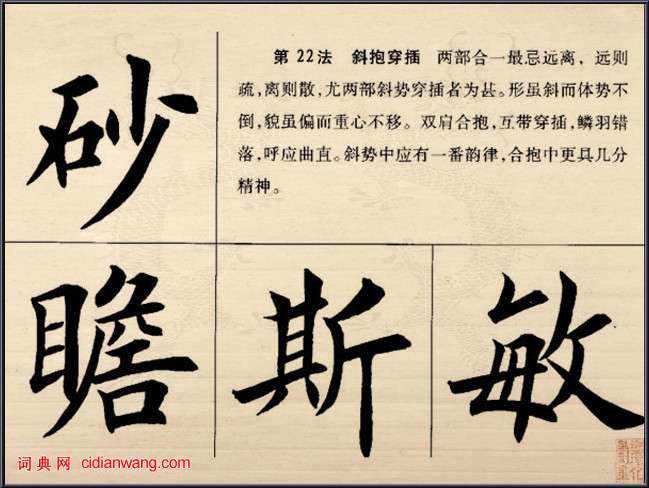 砂
第22法 斜抱穿插 两部合一最忌远离,远则
疏,离则散,尤两部斜势穿插者为甚。形虽斜而体势不
倒,貌虽偏而重心不移。双肩合抱,互带穿插,鳞羽错
落,呼应曲直。斜势中应有一番韵律,合抱中更具几分
精神。
瞻 斯 敏
词典网 cidianwang.com